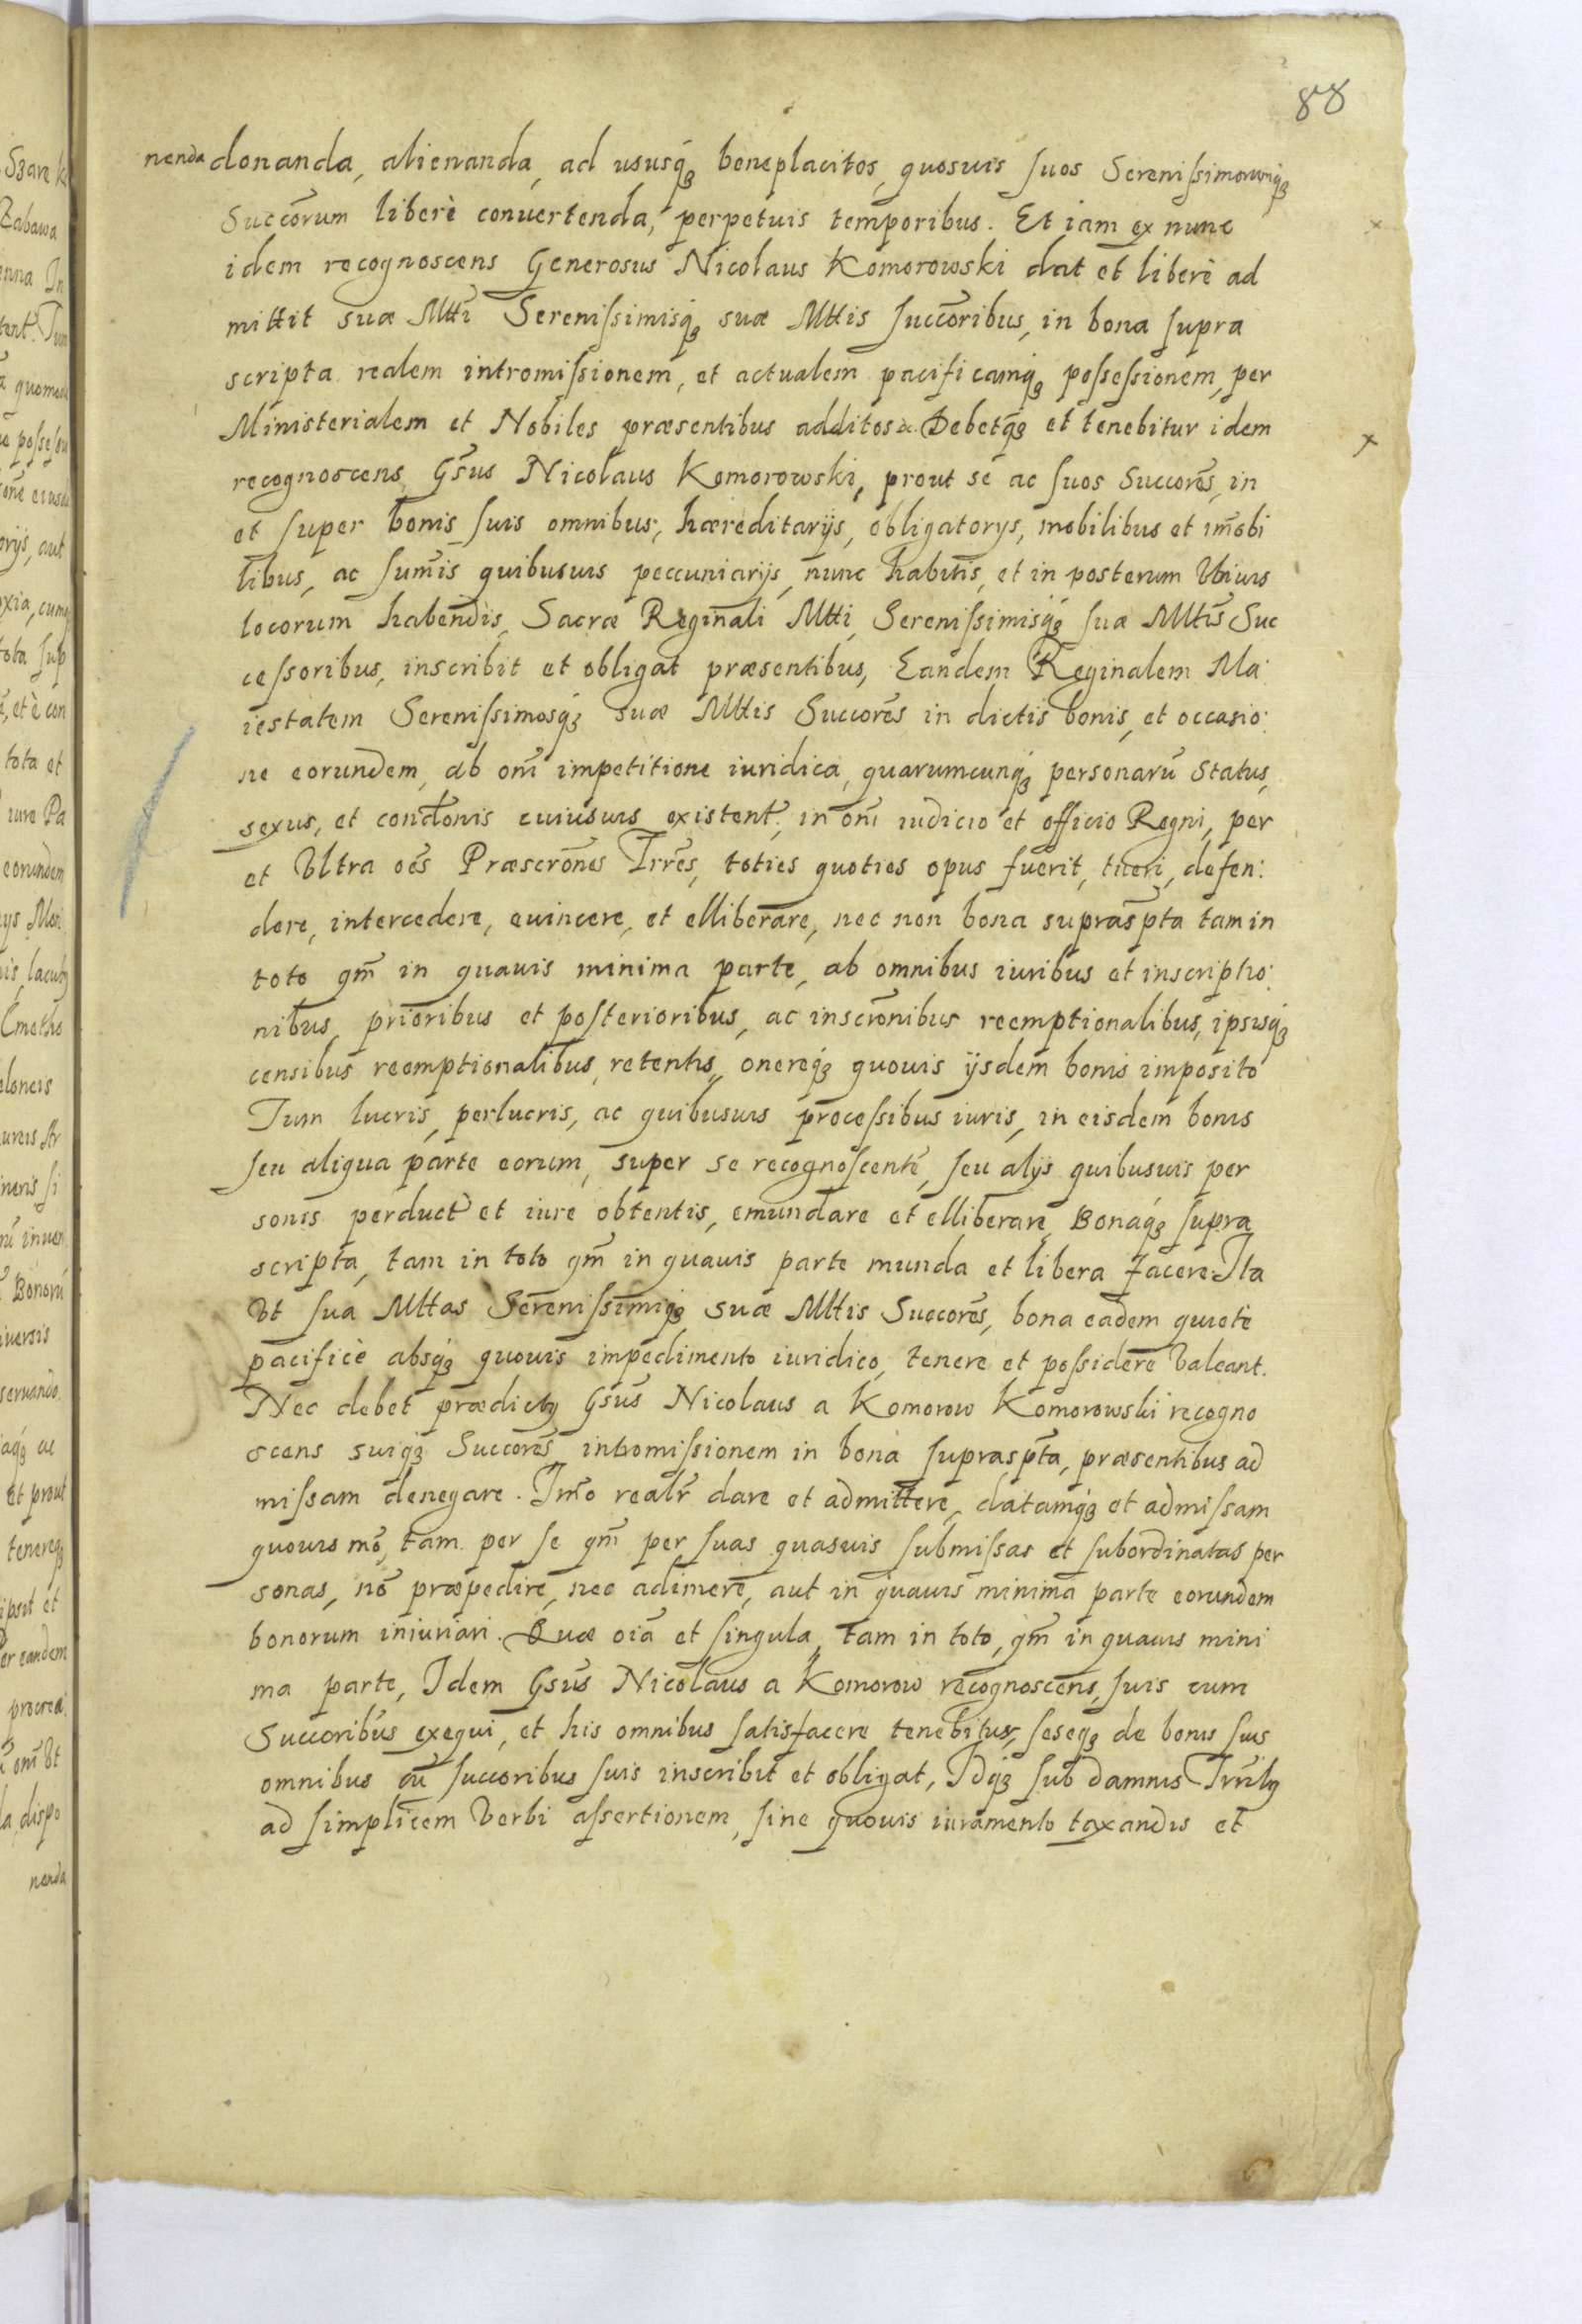 88
nenda donanda, alienanda, ad ususq3 beneplacitos, quosuis suos Serenissimorumq3
Succõrum liberè conuertenda, perpetuis temporibus. Et iam ex nunc
idem recognoscens Generosus Nicolaus Komorowski dat et liberè ad
mittit suæ Mtti Serenissimisq3 suæ Mttis succõribus, in bona supra
scripta realem intromissionem, et actualem pacificamq3 possessionem, per
Ministerialem et Nobiles præsentibus additos &. Debetq3 et tenebitur idem
recognoscens Gs̃us Nicolaus Komorowski, prout se ac suos Succores̃, in
et super bonis suis omnibus, hæreditarijs, obligatorys, mobilibus et im̃obi
libus, ac sum̃is quibusuis peccuniarijs, nunc habitis, et in posterum Vbiuis
locorum habendis, Sacræ Reginali Mtti, Serenissimisq3 suæ Mttis Suc
cessoribus, inscribit et obligat præsentibus, Eandem Reginalem Ma:
iestatem Serenissimosq3 suæ Mttis Succores̃ in dictis bonis, et occasio:
ne eorundem, ab om̃i impetitione iuridica, quarumcunq3 personarũ status,
sexus, et condõnis cuiusuis existent̃, in om̃i iudicio et officio Regni, per
et Vltra oẽs Præscrõnes Trr̃es, toties quoties opus fuerit, tueri, defen:
dere, intercedere, euincere, et elliberare, nec non bona supras̃pta tam in
toto qm̃ in quauis minima parte, ab omnibus iuribus et inscriptio:
nibus, prioribus et posterioribus, ac inscrõnibus reemptionalibus, ipsisq3
censibus reemptionalibus, retentis, onereq3 quouis ijsdem bonis imposito
Tum lucris, perlucris, ac quibusuis processibus iuris, in eisdem bonis
seu aliqua parte eorum, super se recognoscentẽ, seu alijs quibusuis per
sonis perduct̃ et iure obtentis, emundare et elliberare, Bonaq3 supra
scripta, tam in toto qm̃ in quauis parte munda et libera facere. Ita
Vt sua Mttas Serenissimiq3 suæ Mttis Succores̃, bona eadem quietè
pacificè absq3 quouis impedimento iuridico, tenere et possidere Valeant.
Nec debet prædictq Gs̃us Nicolaus a Komorow Komorowski recogno
scens suiq3 Succores̃ intromissionem in bona supraspt̃a, præsentibus ad
missam denegare. Im̃o realr̃ dare et admittere, datamq3 et admissam
quouis mõ, tam per se qm̃ per suas quasuis submissas et subordinatas per
sonas, nõ præpedire, nec adimere, aut in quauis minima parte eorundem
bonorum iniuriari. Quæ oiã et singula, tam in toto, qm̃ in quauis mini
ma parte, Idem Gs̃us Nicolaus a Komorow recognoscens, suis cum
Succoribus exequi, et his omnibus satisfacere tenebitur, seseq3 de bonis suis
omnibus cũ succoribus suis inscribit et obligat, Idq3 sub damnis Trr̃ilq
ad simplicem Verbi assertionem, sine quouis iuramento taxandis et